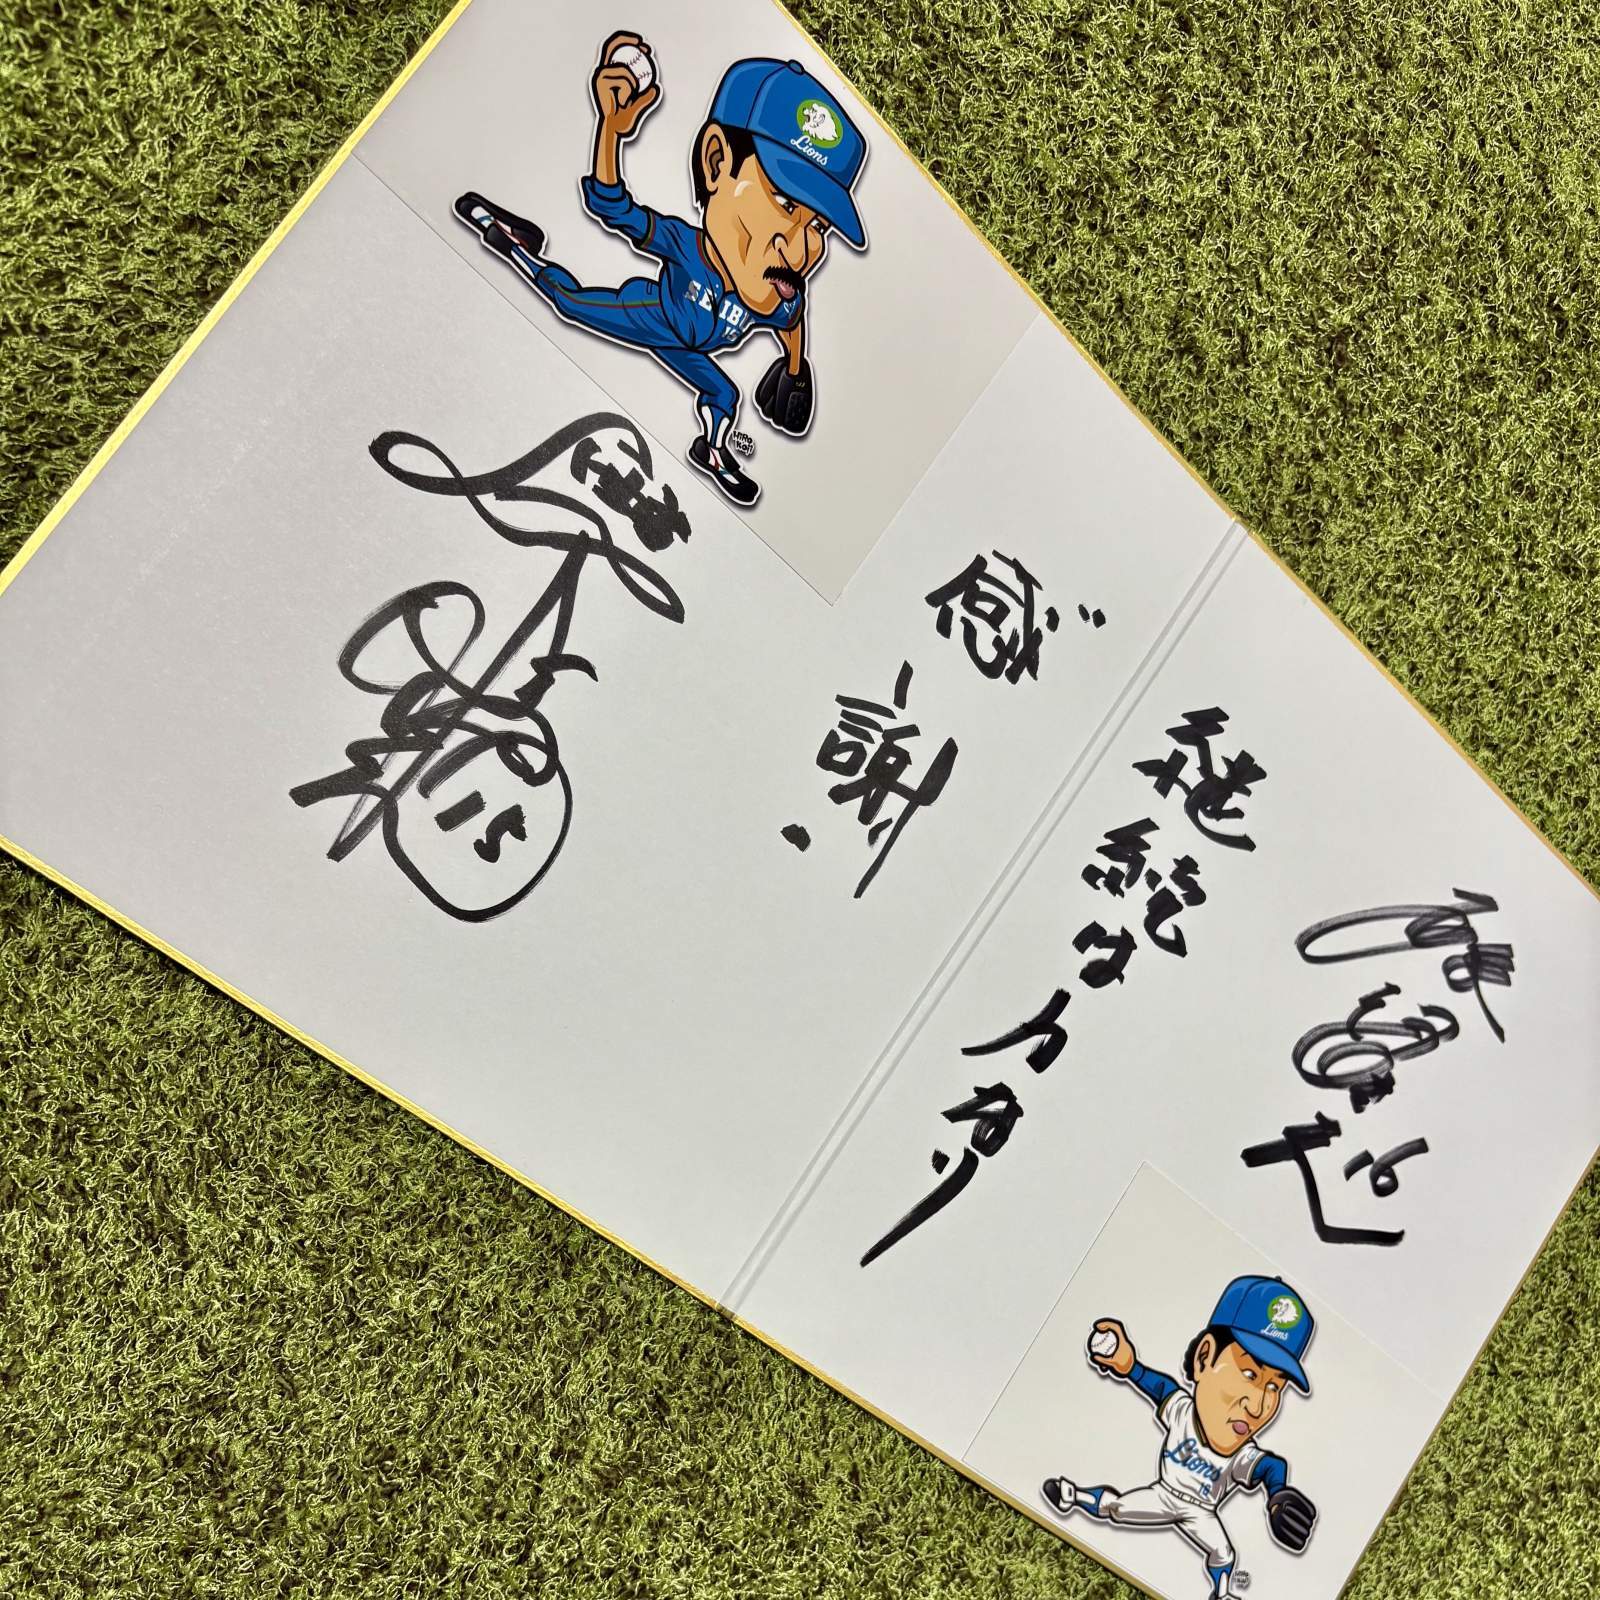 Lions
SEIBU
15
HIRO
KOJI
15
感謝.
継続は力なり
16
Lions
Lions
16